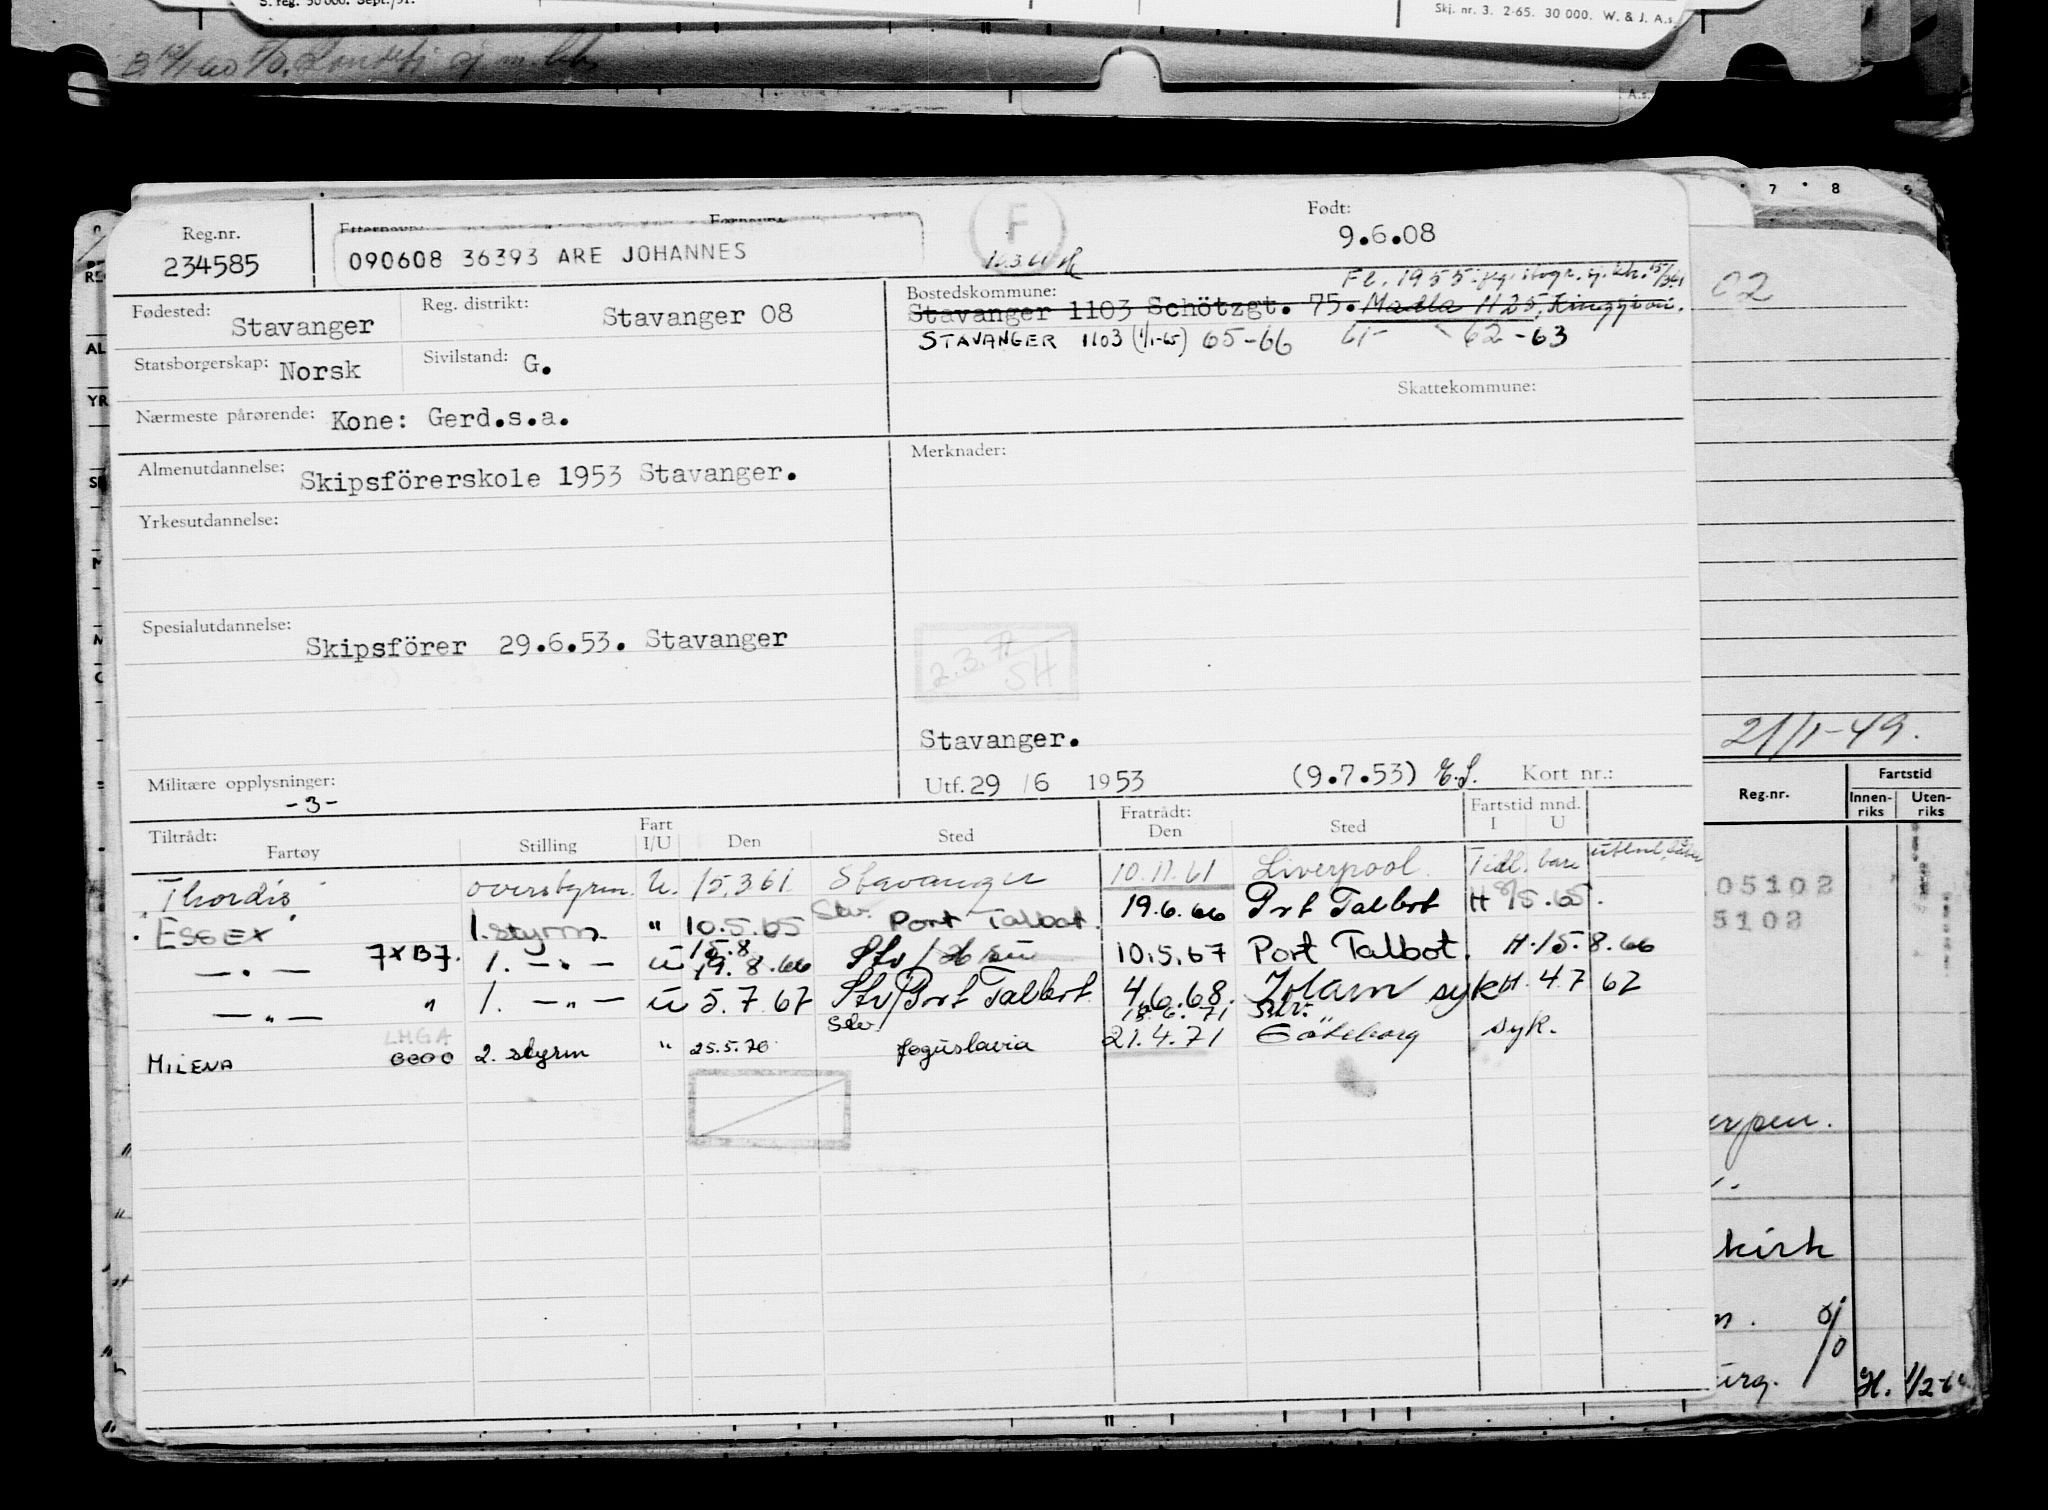 S. reg. 50 000. Sept./51.
Skj. nr. 3. 2-65. 30 000. W. & J. A.s.
A.s.
7 8 9
Reg.nr.
234585
Etternavn: Fornavn:
090608 36393 ARE JOHANNES
F
Født:
9.6.08
Fødested: Stavanger
Reg. distrikt: Stavanger 08
Bostedskommune:
Stavanger 1103 Schötzgt. 75. Madla H 25,
STAVANGER 1103 (1/1-65) 65-66 61- 62-63
02
Statsborgerskap: Norsk
Sivilstand: G.
Skattekommune:
Nærmeste pårørende: Kone: Gerd.s.a.
Almenutdannelse: Skipsförerskole 1953 Stavanger.
Merknader:
Yrkesutdannelse:
Spesialutdannelse: Skipsförer 29.6.53. Stavanger
2.3.77
SH
Stavanger.
21/1-49.
Militære opplysninger:
-3-
Utf. 29/6 1953 (9.7.53) E.S. Kort nr.:
Reg.nr. Fartstid
Innenriks Utenriks
Tiltrådt:
Fartøy Stilling Fart I/U Den Sted Fratrådt: Den Sted Fartstid mnd. I U
Thordis overstyrm. U. 15.3.61 Stavanger 10.11.61 Liverpool. Tidl. bare
ESSEX 1. styrm. " 10.5.65 Stv. Port Talbot. 19.6.66 Prt Talbot H 8/5.65.
05102
5102
— " — 7XB7. 1. — " — u 15.8 19.8.66 Stv / 10.5.67 Port Talbot. H. 15.8.66
— " — " 1. — " — u 5.7.67 Stv/Port Talbot 4.6.68. syk H. 4.7 67
LMGA
MILENA 0000 2. styrm " 25.5.70 Stv. Joguslavia 21.4.71 Göteborg syk.
erpen.
kirk
urg. H. 1/2-6